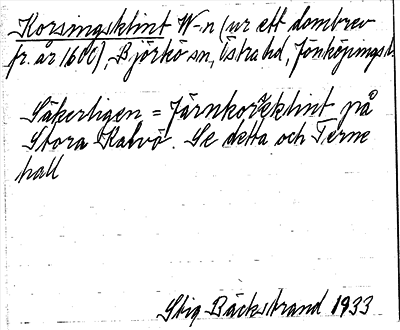 Korsingsklint W-n (ur ett dombrev
fr. år 1600), Björkö sn, Östra hd, Jönköpings l.
Säkerligen = Järnkorsklint på
Stora Kalvö. Se detta och Terne
hall
Stig Bäckstrand 1933